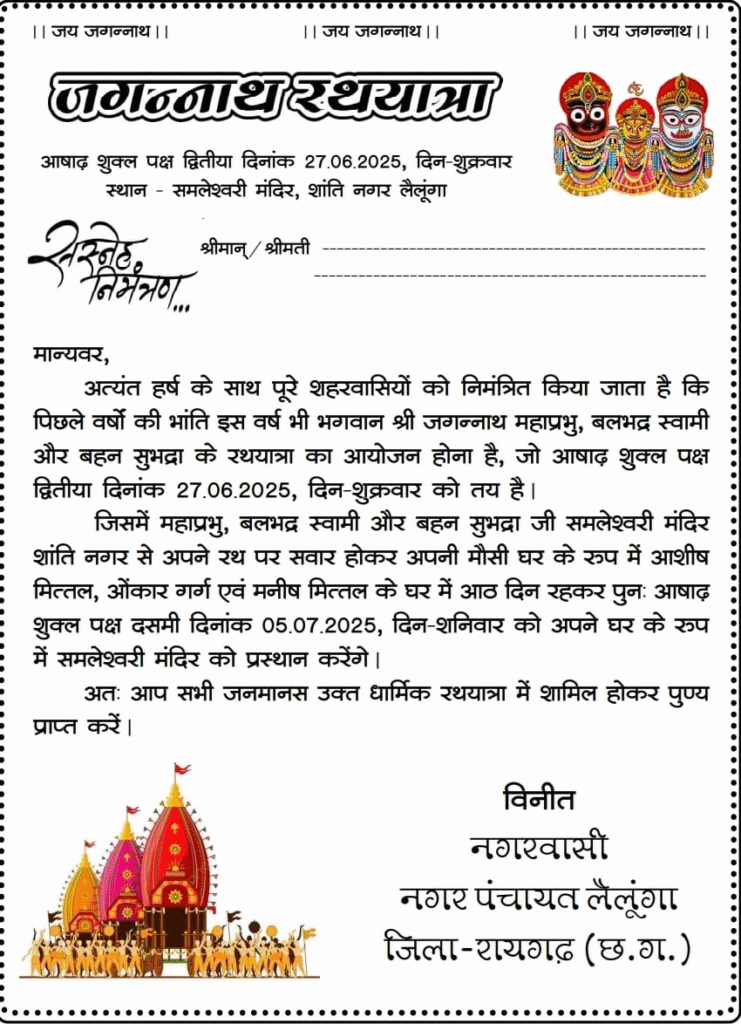 || जय जगन्नाथ || || जय जगन्नाथ || || जय जगन्नाथ ||
जगन्नाथ रथयात्रा
आषाढ़ शुक्ल पक्ष द्वितीया दिनांक 27.06.2025, दिन-शुक्रवार
स्थान - समलेश्वरी मंदिर, शांति नगर लैलूंगा
सस्नेह निमंत्रण...
श्रीमान् / श्रीमती
मान्यवर,
अत्यंत हर्ष के साथ पूरे शहरवासियों को निमंत्रित किया जाता है कि
पिछले वर्षो की भांति इस वर्ष भी भगवान श्री जगन्नाथ महाप्रभु, बलभद्र स्वामी
और बहन सुभद्रा के रथयात्रा का आयोजन होना है, जो आषाढ़ शुक्ल पक्ष
द्वितीया दिनांक 27.06.2025, दिन-शुक्रवार को तय है।
जिसमें महाप्रभु, बलभद्र स्वामी और बहन सुभद्रा जी समलेश्वरी मंदिर
शांति नगर से अपने रथ पर सवार होकर अपनी मौसी घर के रुप में आशीष
मित्तल, ओंकार गर्ग एवं मनीष मित्तल के घर में आठ दिन रहकर पुनः आषाढ़
शुक्ल पक्ष दसमी दिनांक 05.07.2025, दिन-शनिवार को अपने घर के रुप
में समलेश्वरी मंदिर को प्रस्थान करेंगे।
अतः आप सभी जनमानस उक्त धार्मिक रथयात्रा में शामिल होकर पुण्य
प्राप्त करें।
विनीत
नगरवासी
नगर पंचायत लैलूंगा
जिला-रायगढ़ (छ.ग.)